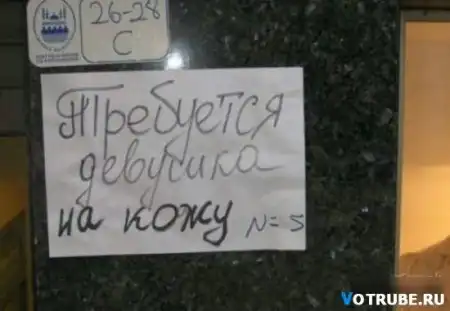 26-28
С
Требуется
девушка
на кожу N=5
VOTRUBE.RU